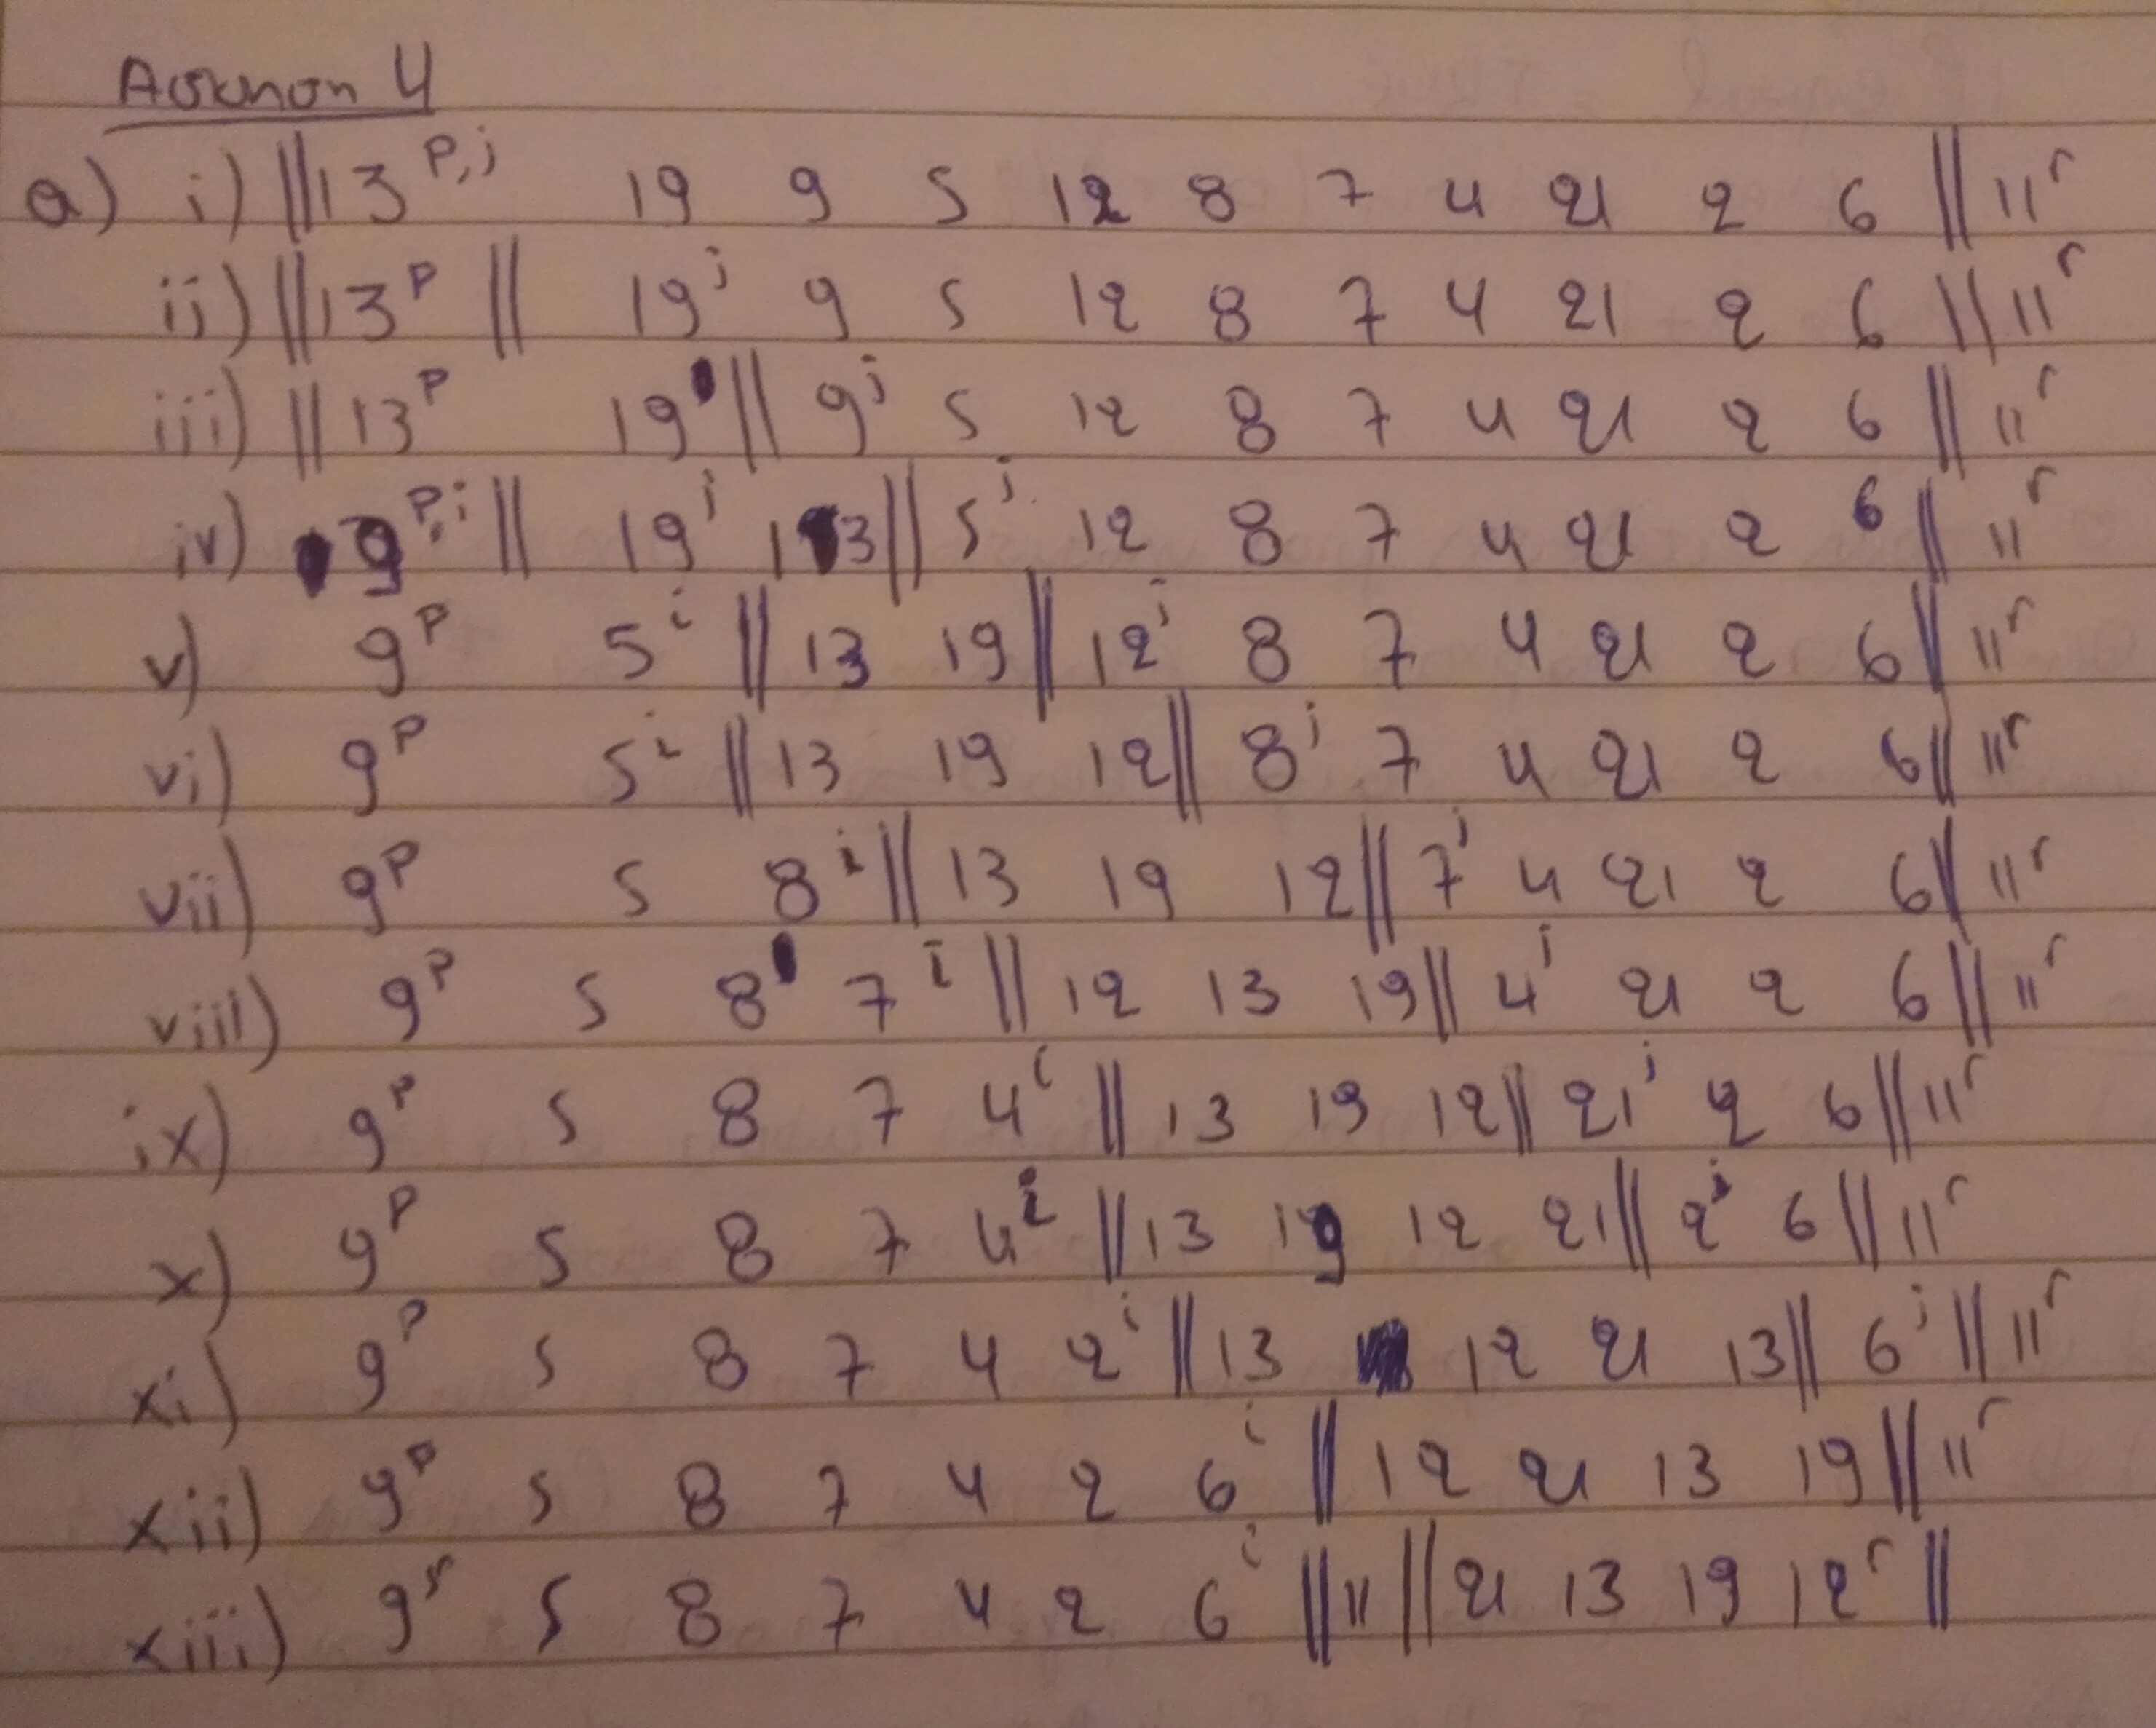 Άσκηση 4
a) i) ||13^p,j 19 9 5 12 8 7 4 21 2 6 || 11^r
ii) ||13^p || 19^j 9 5 12 8 7 4 21 2 6 || 11^r
iii) || 13^p 19 || 9^j 5 12 8 7 4 21 2 6 || 11^r
iv) 9^p,i || 19^j 13 || 5^j 12 8 7 4 21 2 6 || 11^r
v) 9^p 5^i || 13 19 || 12^j 8 7 4 21 2 6 || 11^r
vi) 9^p 5^i || 13 19 12 || 8^j 7 4 21 2 6 || 11^r
vii) 9^p 5 8^i || 13 19 12 || 7^j 4 21 2 6 || 11^r
viii) 9^p 5 8 7^i || 12 13 19 || 4^j 21 2 6 || 11^r
ix) 9^p 5 8 7 4^i || 13 19 12 || 21^j 2 6 || 11^r
x) 9^p 5 8 7 4^i || 13 19 12 21 || 2^j 6 || 11^r
xi) 9^p 5 8 7 4 2^i || 13 12 21 13 || 6^j || 11^r
xii) 9^p 5 8 7 4 2 6^i || 12 21 13 19 || 11^r
xiii) 9^r 5 8 7 4 2 6^i || 11 || 21 13 19 12^r ||